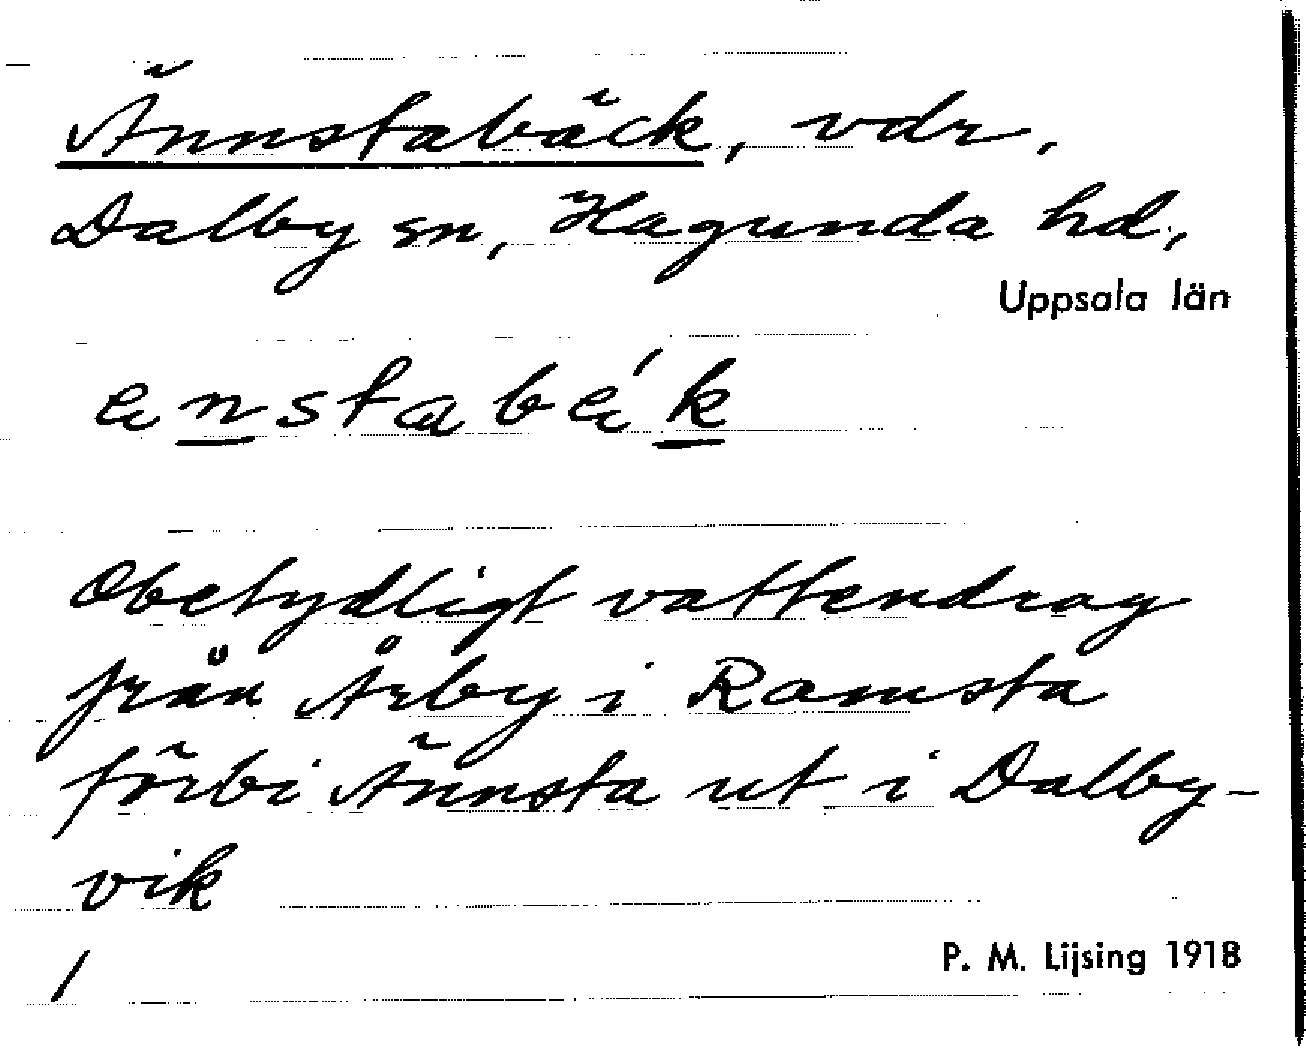 Ännstabäck, vdr.
Dalby sn, Hagunda hd,
Uppsala län
änstabäk
Obetydligt vattendrag
från Årby i Ramsta
förbi Ännsta ut i Dalby-
vik
/
P. M. Lijsing 1918